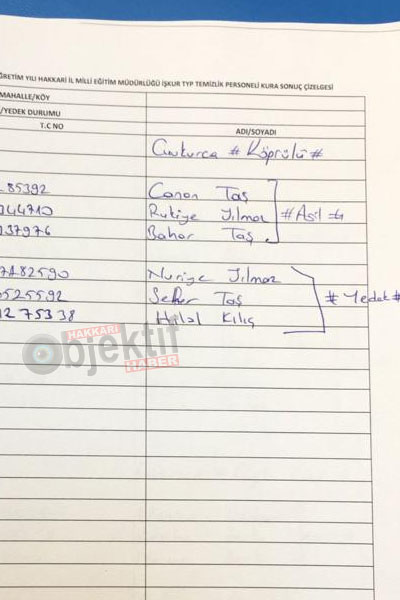 ÖĞRETİM YILI HAKKARİ İL MİLLİ EĞİTİM MÜDÜRLÜĞÜ İŞKUR TYP TEMİZLİK PERSONELİ KURA SONUÇ ÇİZELGESİ
MAHALLE/KÖY
/YEDEK DURUMU
T.C NO ADI/SOYADI
Çukurca # Köprülü #
85392 Canan Taş
44710 Rukiye Yılmaz # Asil #
37976 Bahar Taş
7482590 Nuriye Yılmaz
525592 Seher Taş # Yedek #
1275338 Hilal Kılıç
HAKKARİ
Objektif
HABER